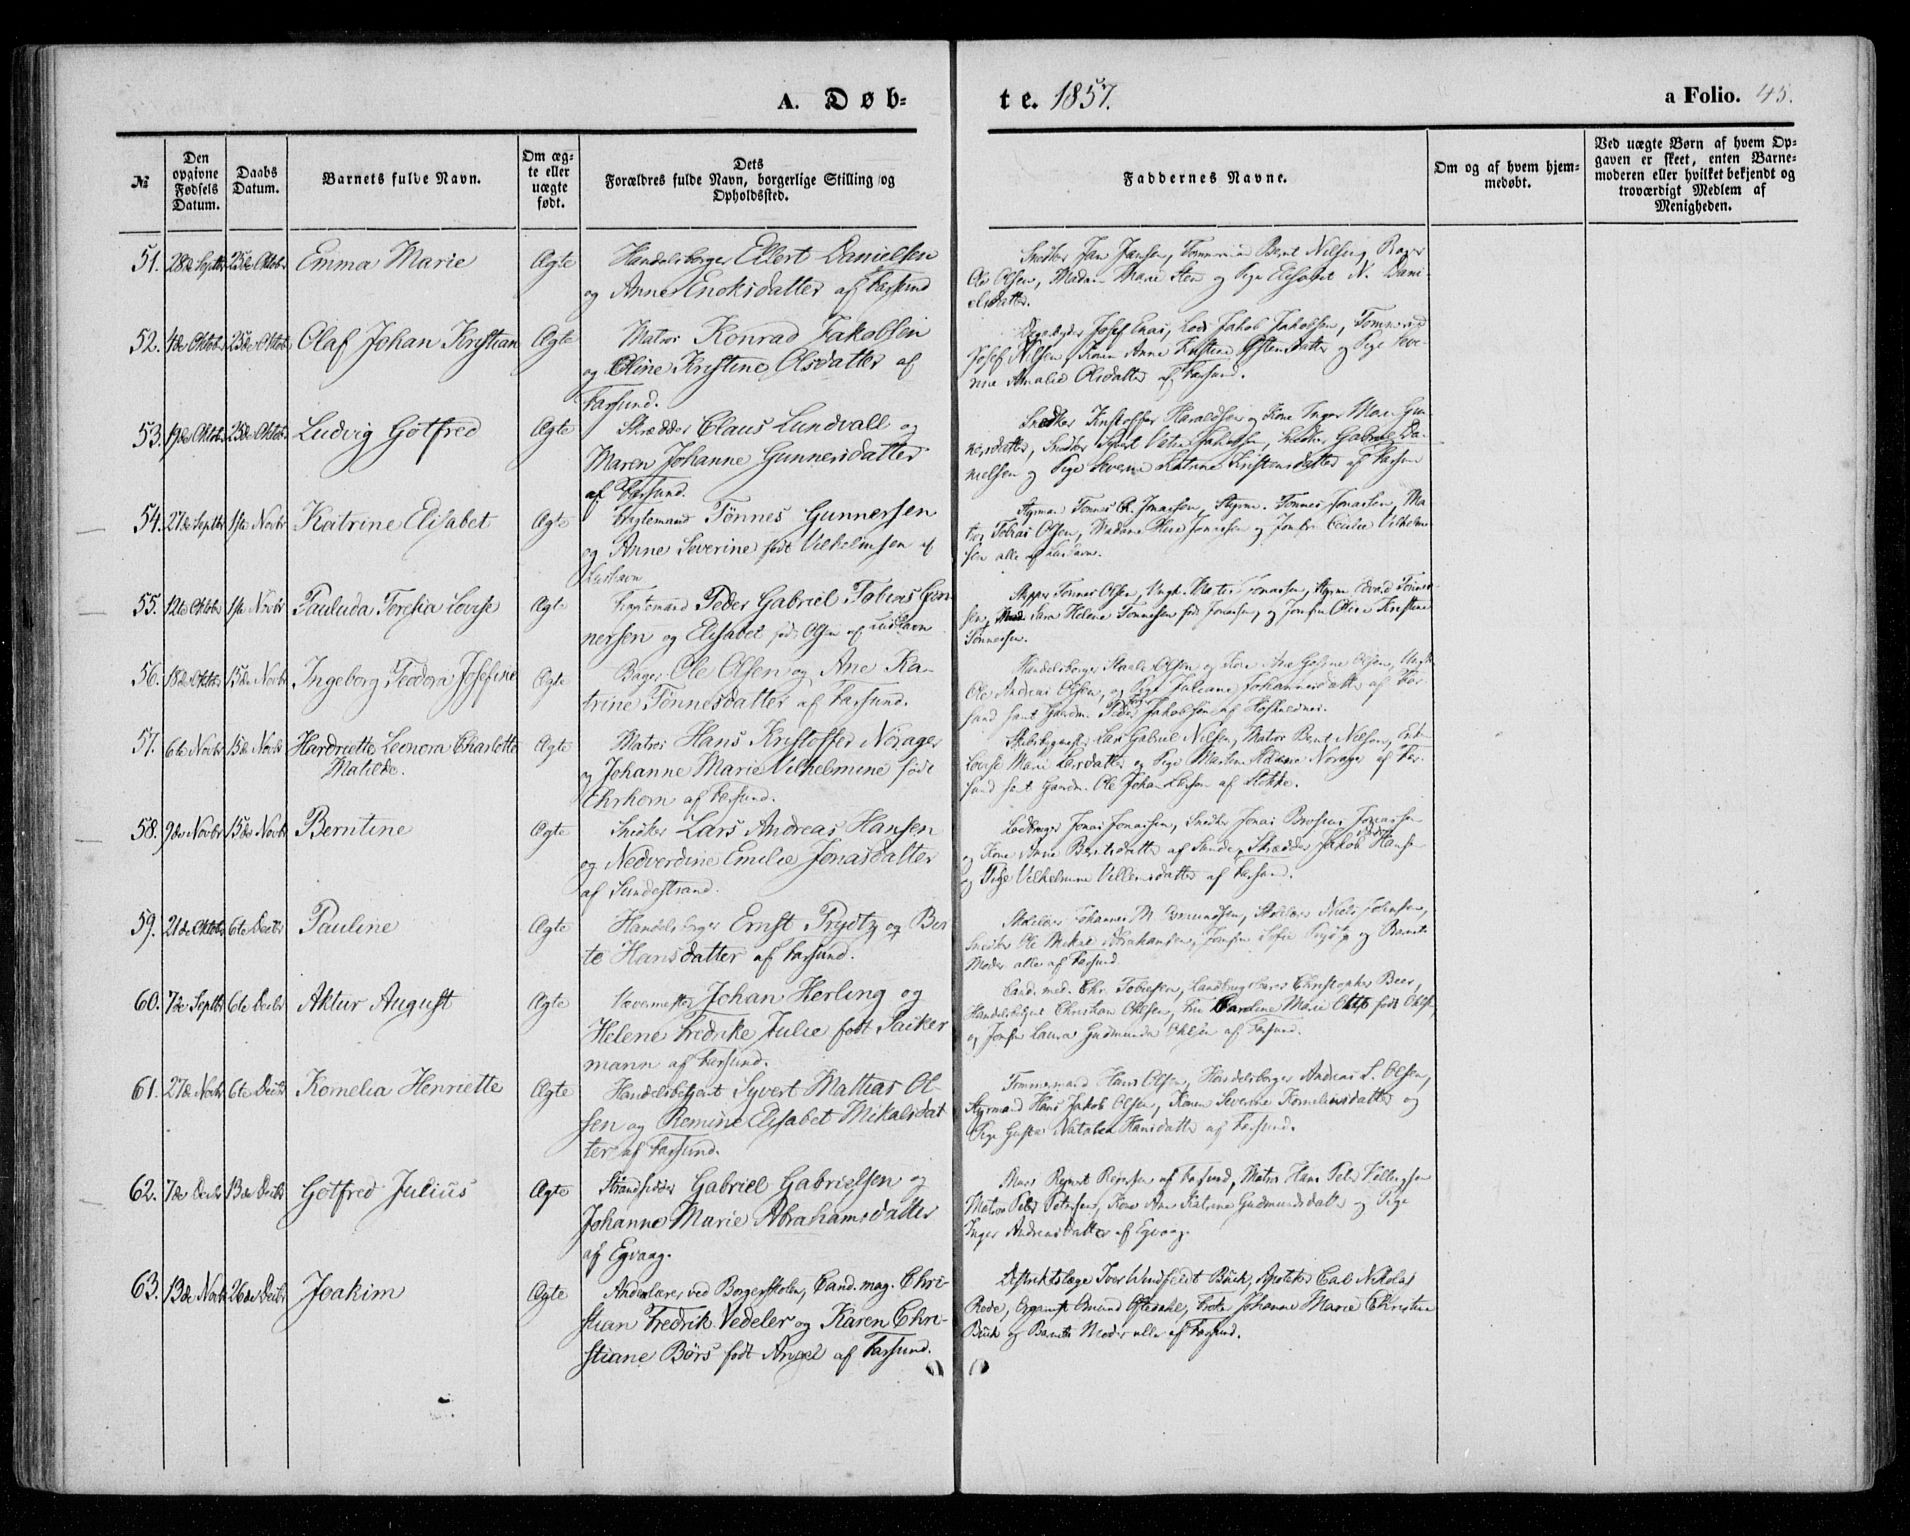 A. Døb-
te. 1857.
a Folio. 45.
№
Den opgivne Fødsels Datum.
Daabs Datum.
Barnets fulde Navn.
Om ægte eller uægte født.
Dets Forældres fulde Navn, borgerlige Stilling og Opholdssted.
Faddernes Navne.
Om og af hvem hjemmedøbt.
Ved uægte Børn af hvem Opgaven er skeet, enten Barnemoderen eller hvilket bekjendt og troværdigt Medlem af Menigheden.
51. 28de Septbr 25de Oktobr Emma Marie Ægte Handelsborger Ellert Danielsen
og Anne Enoksdatter af Farsund
Snedker Jan Jansen, Bernt Nilsen, Bager
Ole Olsen, Madam Marie Sten og Pige Elisabet N. Dani-
elsdatter.
52. 4de Oktobr 25de Oktobr Olaf Johan Kristian Ægte Matros Konrad Jakobsen
og Oline Kristine Olsdatter af
Farsund.
Josef Enas, Lods Jakob Jakobsen,
Josef Nilsen, Kone Anne Kristine og Pige Seve-
rine Amalie Olsdatter af Farsund.
53. 25de Oktobr Ludvig Gotfred Ægte Skrædder Claus Lundvall og
Maren Johanne Gunnersdatter
af Farsund.
Snedker Kristoffer Haraldsen og Kone Inger Marie Gun-
nersdatter, Snedker Jakobsen, Snedker Gabriel Da-
nielsen og Pige Severine Katrine Kristensdatter af Farsund
54. 27de Septbr 1ste Novbr Katrine Elisabet Ægte Fragtemand Tönnes Gunnersen
og Anne Severine født Vilhelmsen af
Lushavn
Styrman Tönnes Jonassen, Styrm. Tönnes Jonassen, Ma-
tros Tobias Olsen, Madame Jonassen og Jomfru Cecilie Vilhelm-
sen alle af Lushavn.
55. 12te Oktobr 1ste Novbr Pauluda Toresia Lovise Ægte Fragtemand Peder Gabriel Tobias Gun-
nersen og Elisabet født Olsen af Lushavn
Skipper Tönnes Olsen, Ungk. Jonassen, Styrm. Tönnes-
sen, Mad. Sara Helene Tönnesen født Jonassen, og Jomfru Oline Kristine
Tönnessen.
56. 18de Oktobr 15de Novbr Ingeborg Teodora Josefine Ægte Bager Ole Olsen og Ane Ka-
trine Tönnesdatter af Farsund.
Handelsborger Olsen og Kone Ane Olsen, Ungk.
Ole Andreas Olsen, og Pige Juliane Johannesdatter af Far-
sund samt Gaardm. Peder Jakobsen af
57. 6te Novbr 15de Novbr Hardriette Leonora Charlotte Ægte Matros Hans Kristoffer Nörager
Matilde. og Johanne Marie Vilhelmine født
Ehrhorn af Farsund.
Skibsbygmester Lars Gabriel Nilsen, Matros Bent Nilsen,
Lovise Marie Larsdatter og Pige Martine Nörager af Far-
sund samt Gaardm. Ole Johan Larsen af Stokke.
58. 9de Novbr 15de Novbr Berntine Ægte Snedker Lars Andreas Hansen
og Nedverdine Emilie Jonasdatter
af Sundestrand.
Jonas Jonassen, Snedker Jonas Brosius Jonassen
og Kone Anne Berntsdatter af Sunde, Skrædder Jakob Hansen
og Pige Vilhelmine Villumsdatter af Farsund.
59. 21de Oktobr 6te Decbr Pauline Ægte Handelsborger Ernst Prydtz og Ber-
te Hansdatter af Farsund.
Skolelærer Johannes M. Asmundsen, Skolelærer Niels Johnsen,
Snedker Ole Mikal Abrahamsen, Jomfru Sofie Prydtz og Barnets
Moder alle af Farsund.
60. 7de Septbr 6te Decbr Aktur August Ægte Vævermester Johan Herling og
Helene Fredrike Julie født Packer
mann af Farsund.
Cand. med. Chr. Tobiesen, Christopher Beer,
Handelsborger Christian Ohlsen, Fru Caroline Marie født
og Jomfru Laura Gudmunda Ohlsen af Farsund.
61. 27de Novbr 6te Decbr Kornelia Henriette Ægte Handelsbetjent Syvert Mattias Ol-
sen og Remine Elisabet Mikalsdat
ter af Farsund.
Tömmermand Hans Olsen, Handelsborger Andreas L. Olsen,
Styrmand Hans Jakob Olsen, Konen Severine Korneliusdatter og
Pige Gusta Natalia Hansdatter af Farsund.
62. 7de Decbr 13de Decbr Gotfred Julius Ægte Strandsidder Gabriel Gabrielsen og
Johanne Marie Abrahamsdatter
af Egvaag.
Reinert Reinersen af Farsund, Matros Hans Peter Villumsen
Matros Peder Petersen, Kone Ane Katrine Gudmundsdatter og Pige
Inger Andreasdatter af Egvaag.
63. 13de Novbr 26de Decbr Joakim Ægte Andenlærer ved Borgerskolen, Cand. mag. Chri-
stian Fredrik Vedeler og Karen Chri-
stiane Börs født Angel af Farsund.
Destriktslæge Iver Windfeldt Buck, Apoteker Carl Nikolas
Rode, Organist Omund Oftedahl, Frøken Johanne Marie Christine
Buck og Barnets Moder alle af Farsund.